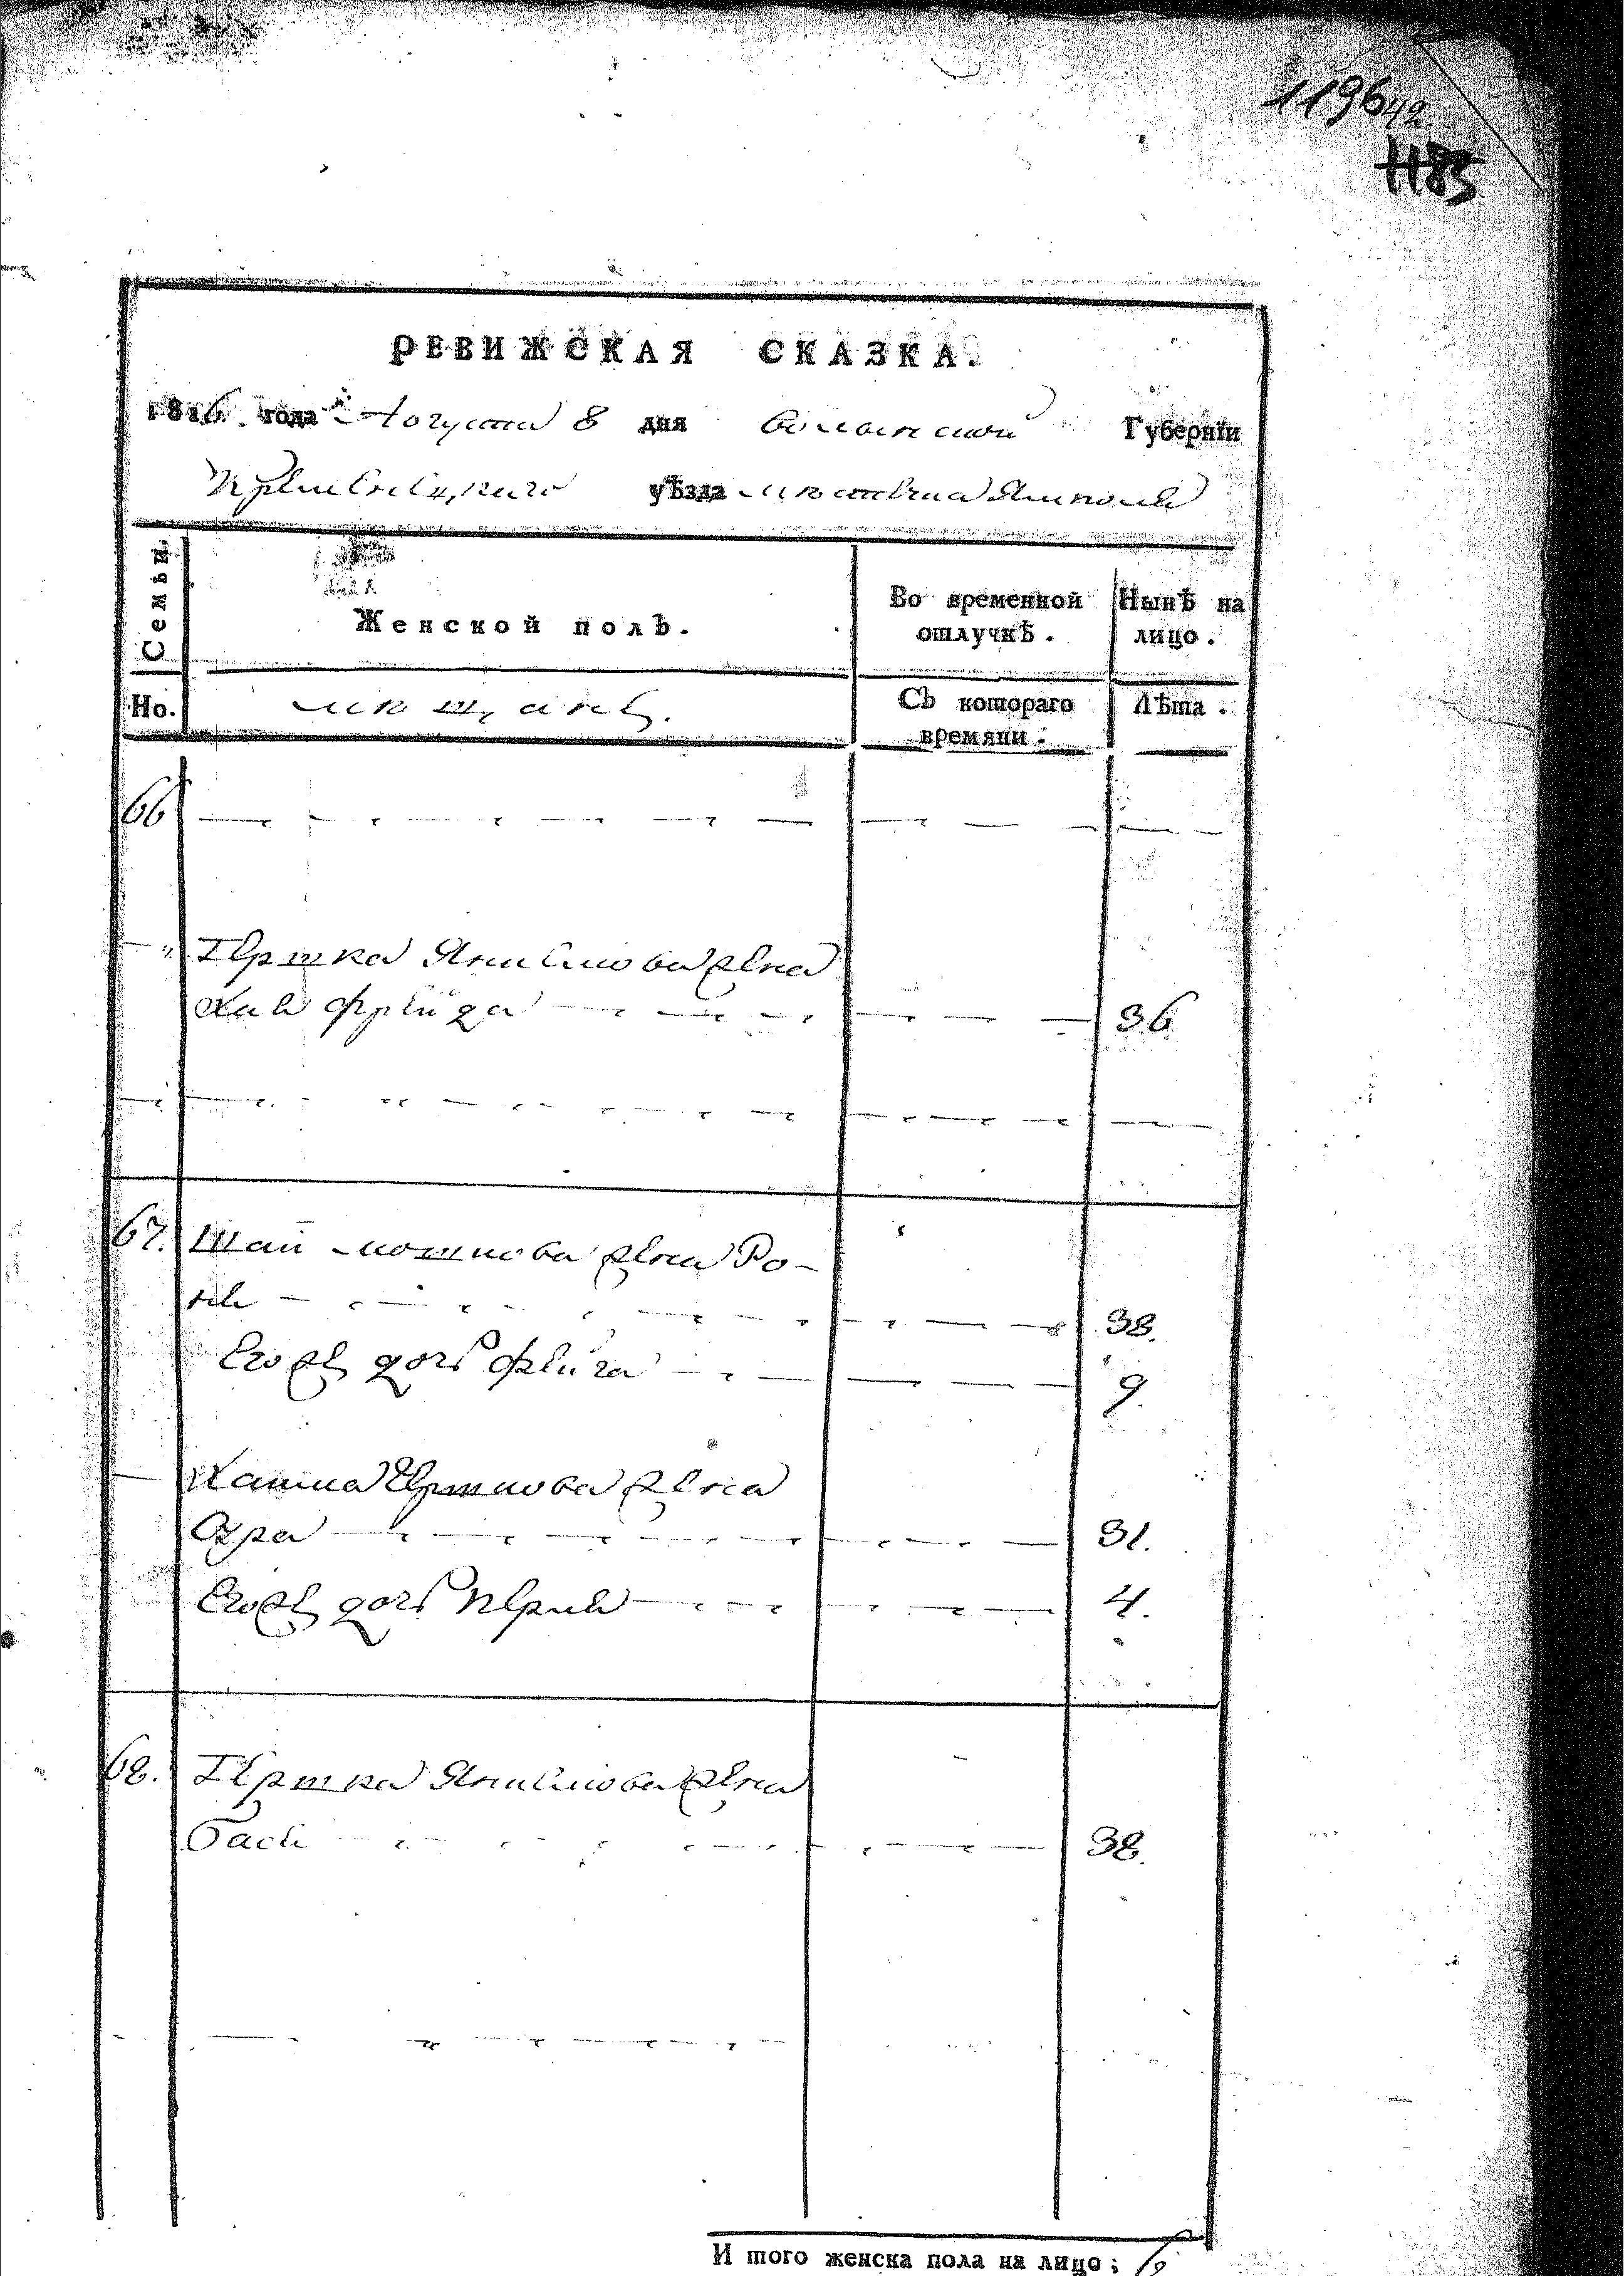 119642
1183
РЕВИЖСКАЯ СКАЗКА.
1816 года Августа 8 дня Волынской Губерніи
Кременецкаго уѣзда местечка Ямполя
Семьи.
Женской полъ.
Во временной отлучкѣ.
Нынѣ на лицо.
Но.
мещанъ.
Съ котораго времяни.
Лѣта.
66
Гершка жена
Хая Фрейда 36
67. Шаи Мошкова жена Ро-
хля 38.
Егожъ дочь Фейга 9.
Хаима Гершкова жена
Сура 31.
Егожъ дочь Перля 4.
68. Гершка жена
Бася 38.
И того женска пола на лицо; 6